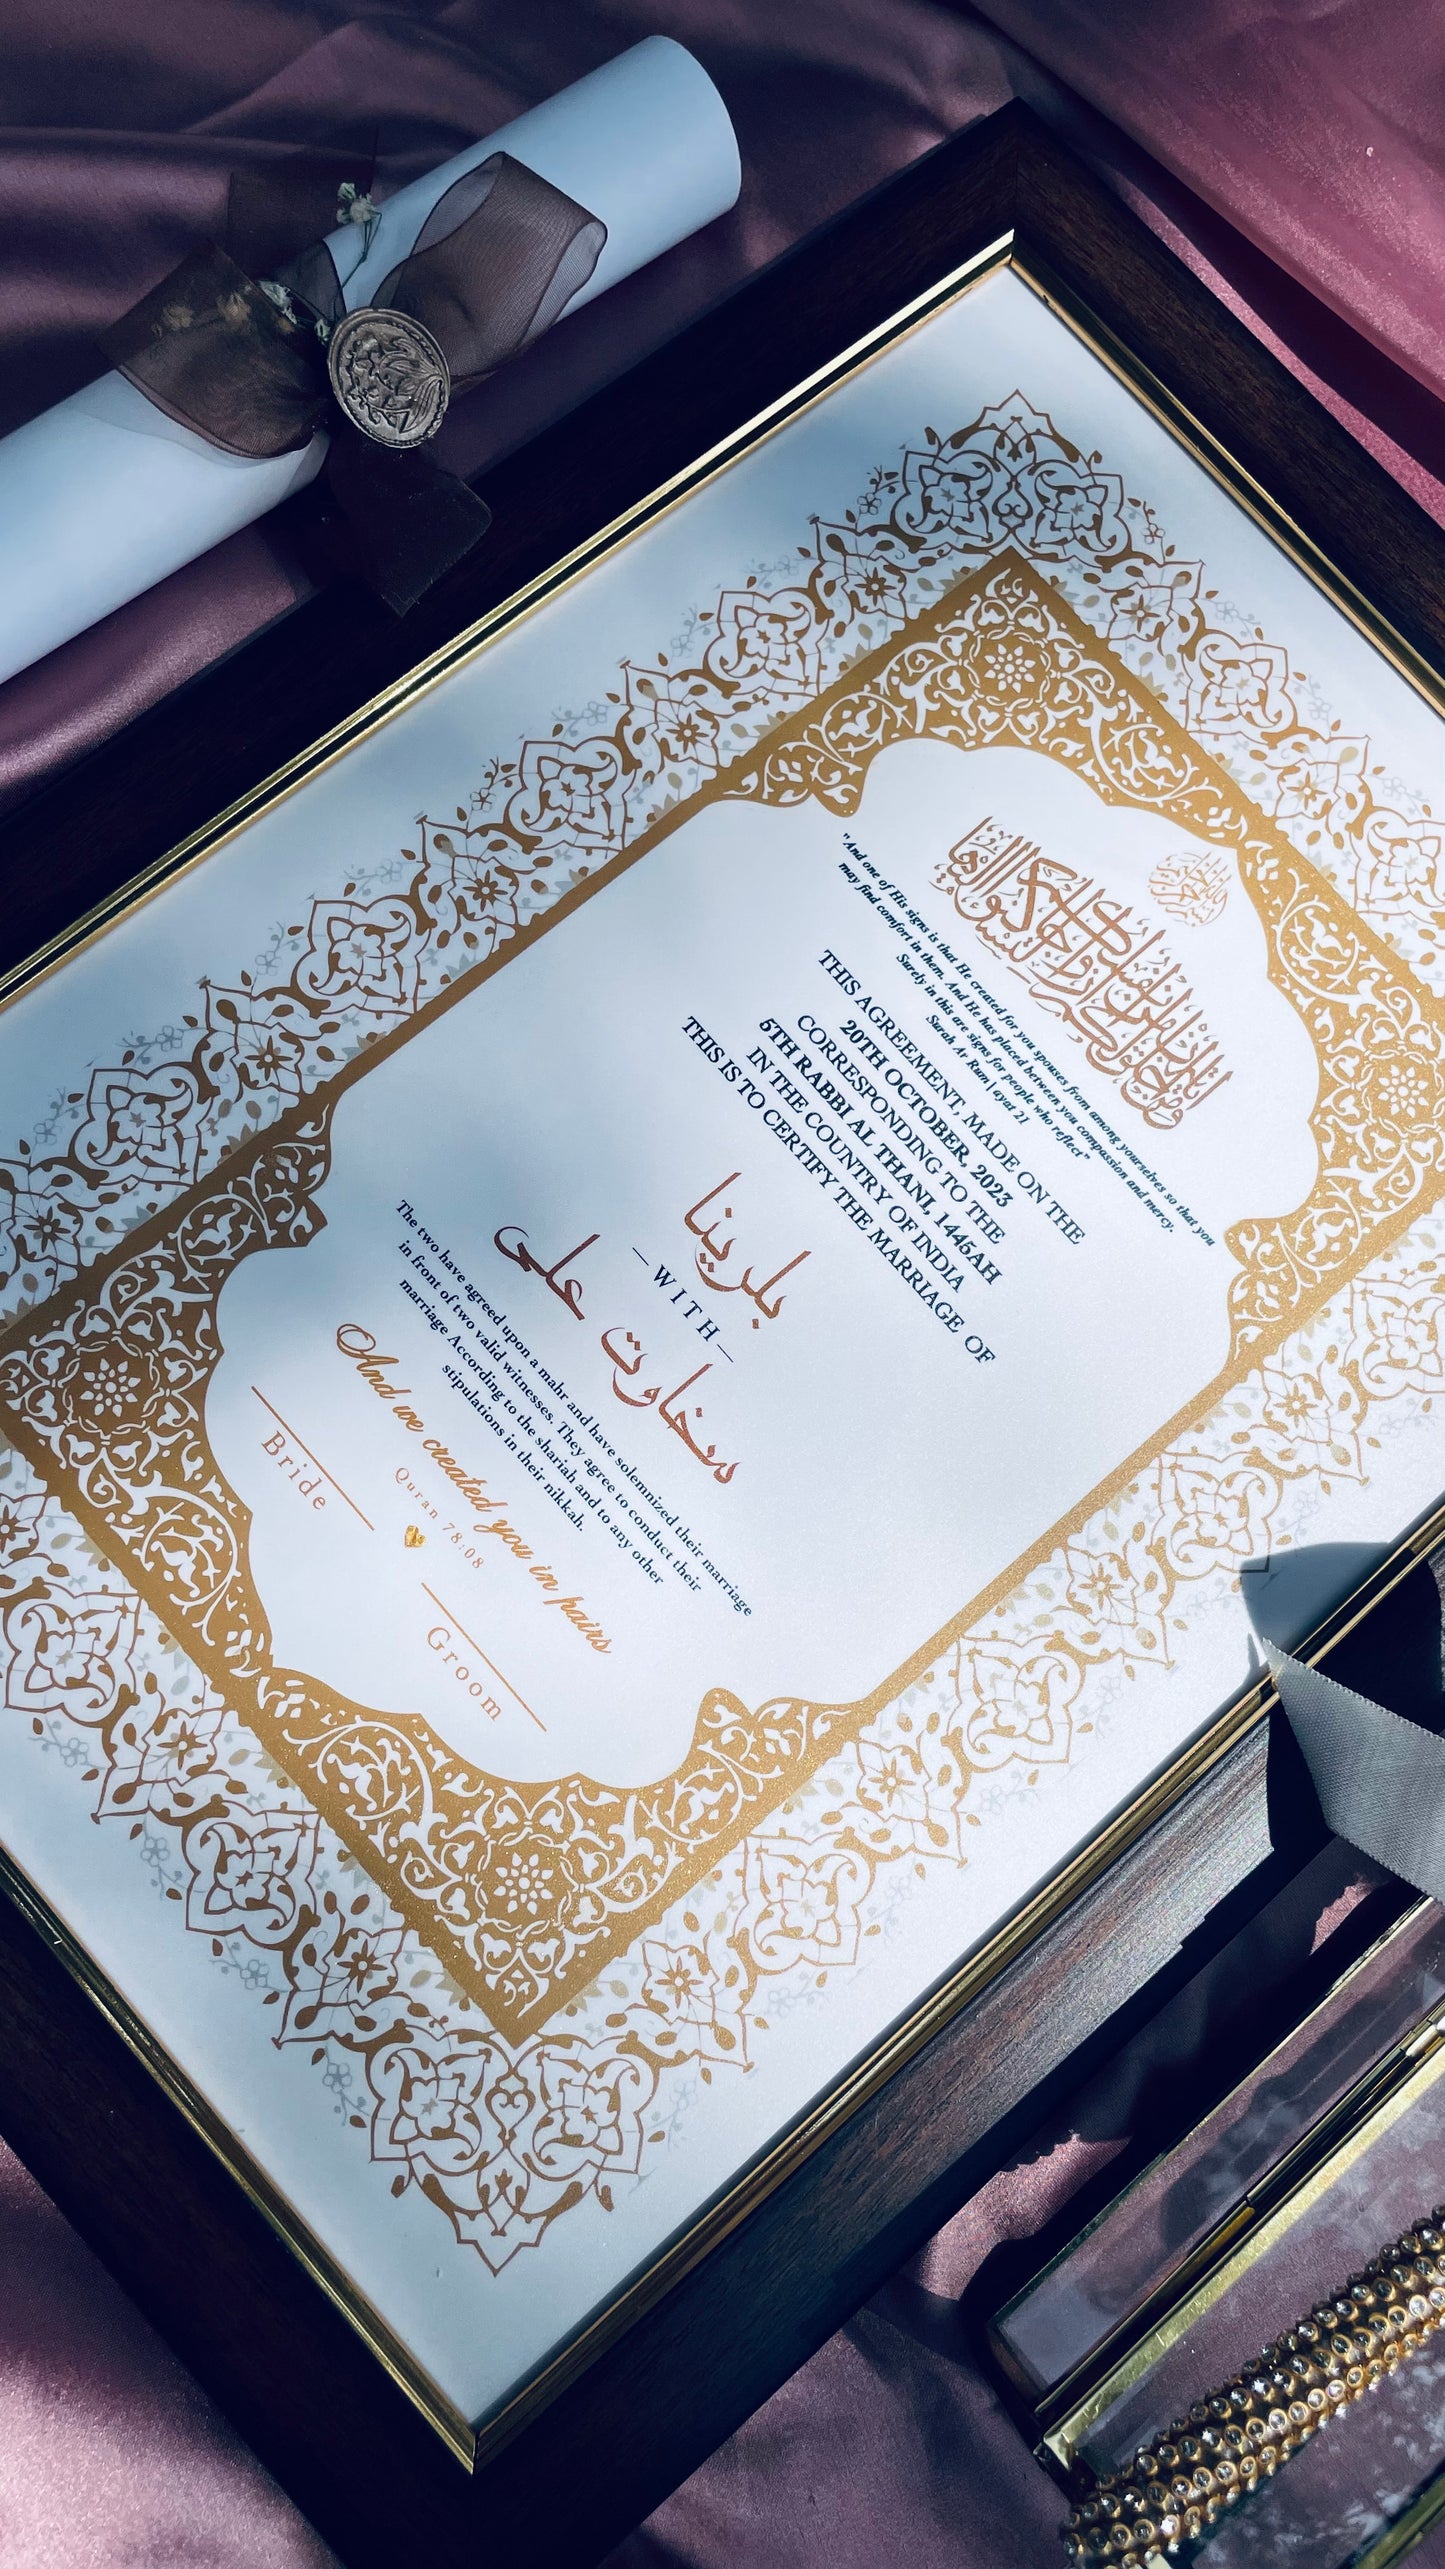 ومن ءايته أن خلق لكم من أنفسكم أزوجا لتسكنوا إليها
"And one of His signs is that He created for you spouses from among yourselves so that you
may find comfort in them. And He has placed between you compassion and mercy.
Surely in this are signs for people who reflect"
Surah Ar Rum | ayat 21
THIS AGREEMENT, MADE ON THE
20TH OCTOBER, 2023
CORRESPONDING TO THE
5TH RABBI AL THANI, 1445AH
IN THE COUNTRY OF INDIA
THIS IS TO CERTIFY THE MARRIAGE OF
بلرينا
— WITH —
سخاوت على
The two have agreed upon a mahr and have solemnized their marriage
in front of two valid witnesses. They agree to conduct their
marriage According to the shariah and to any other
stipulations in their nikkah.
And we created you in pairs
Quran 78:08
Bride
Groom